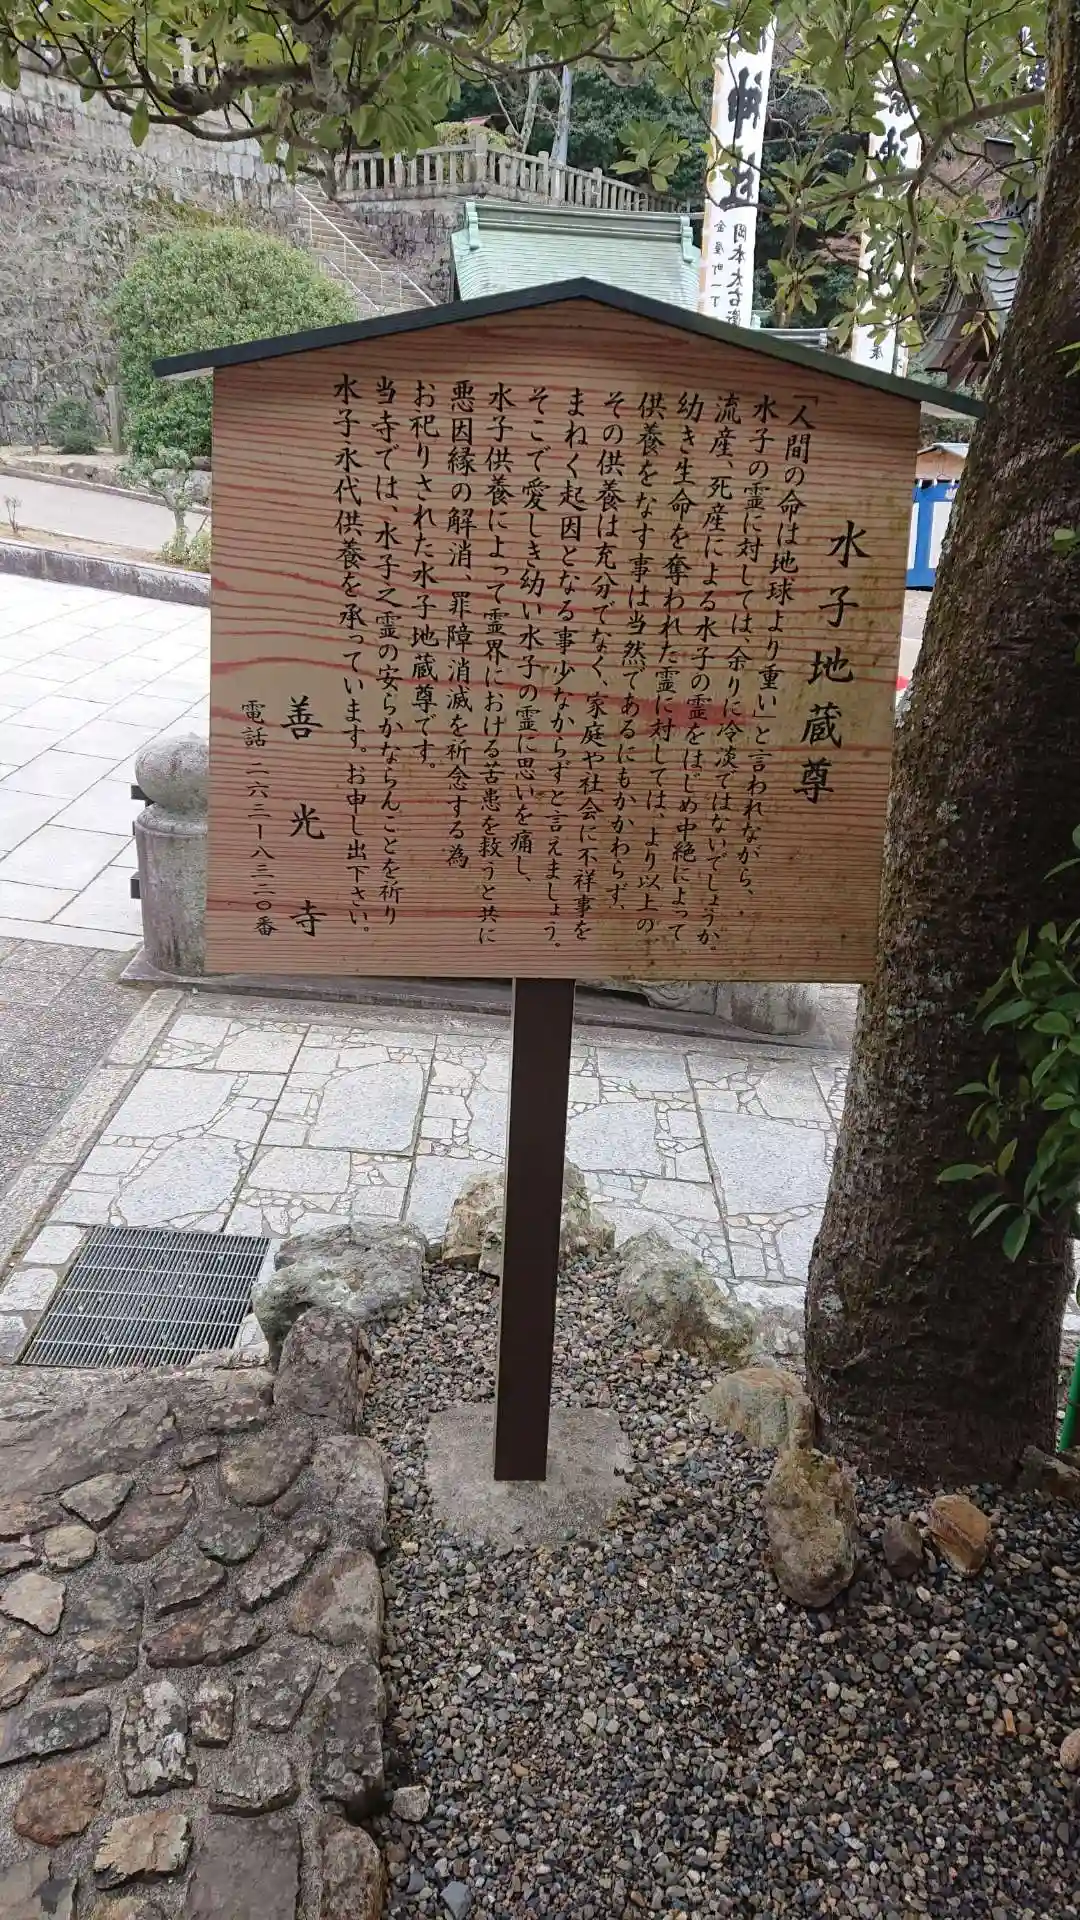 水子地蔵尊
「人間の命は地球より重い」と言われながら、
水子の霊に対しては、余りに冷淡ではないでしょうか。
流産、死産による水子の霊をはじめ中絶によって
幼き生命を奪われた霊に対しては、より以上の
供養をなす事は当然であるにもかかわらず、
その供養は充分でなく、家庭や社会に不祥事を
まねく起因となる事少なからずと言えましょう。
そこで愛しき幼い水子の霊に思いを痛し、
水子供養によって霊界における苦患を救うと共に
悪因縁の解消、罪障消滅を祈念する為
お祀りされた水子地蔵尊です。
当寺では、水子之霊の安らかならんことを祈り
水子永代供養を承っています。お申し出下さい。
善光寺
電話 二六二ー八三二〇番
神社
岡本太右衛
金屋町一丁